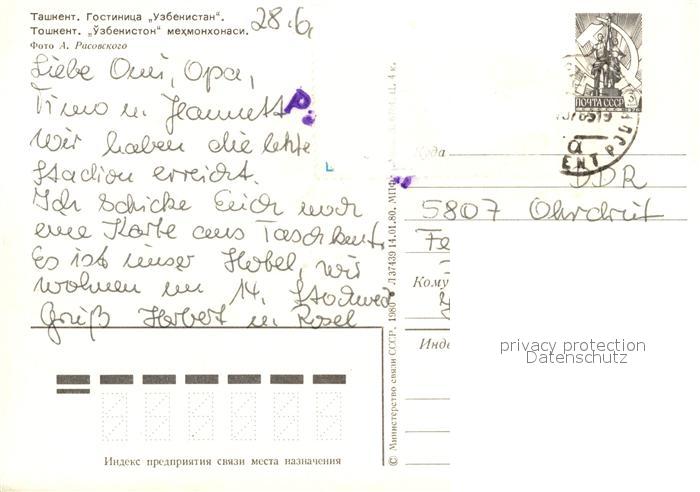 Ташкент. Гостиница „Узбекистан“.
Тошкент. „Ўзбекистон“ меҳмонхонаси.
Фото А. Расовского
28.6.
Liebe Omi, Opa,
Timo u. Jeannett
Wir haben die letzte
Stadion erreicht.
Ich schicke Euch noch
eine Karte aus Taschkent.
Es ist unser Hotel, wir
wohnen im 14. Stockwerk
Gruß Herbert u. Rosel
Индекс предприятия связи места назначения
© Министерство связи СССР. 1980 Л 37439 14.01.80. МПФГ
Ц. 4 к.
ПОЧТА СССР
Куда
DDR
5807 Ohrdruf
Fe
Кому
Инде
privacy protection
Datenschutz